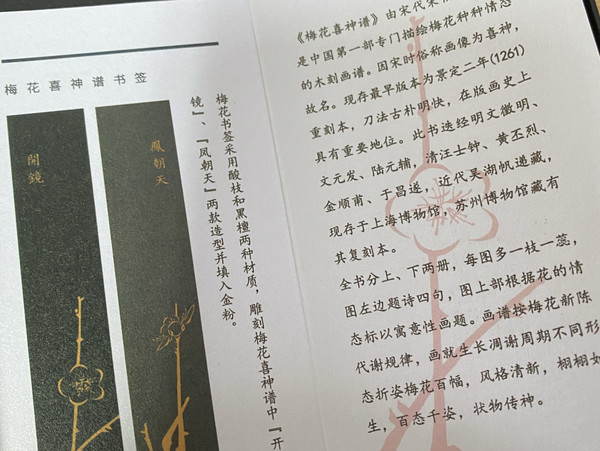 梅花喜神谱书签
開鏡
鳳朝天
梅花书签采用酸枝和黑檀两种材质，雕刻梅花喜神谱中『开
镜』、『凤朝天』两款造型并填入金粉。
《梅花喜神谱》由宋代宋
是中国第一部专门描绘梅花种种情态
的木刻画谱。因宋时俗称画像为喜神，
故名。现存最早版本为景定二年(1261)
重刻本，刀法古朴明快，在版画史上
具有重要地位。此书迭经明文徵明、
文元发、陆元辅，清汪士钟、黄丕烈、
金顺甫、于昌遂，近代吴湖帆递藏，
现存于上海博物馆，苏州博物馆藏有
其复刻本。
全书分上、下两册，每图多一枝一蕊，
图左边题诗四句，图上部根据花的情
态标以寓意性画题。画谱按梅花新陈
代谢规律，画就生长凋谢周期不同形
态折姿梅花百幅，风格清新，栩栩如
生，百态千姿，状物传神。